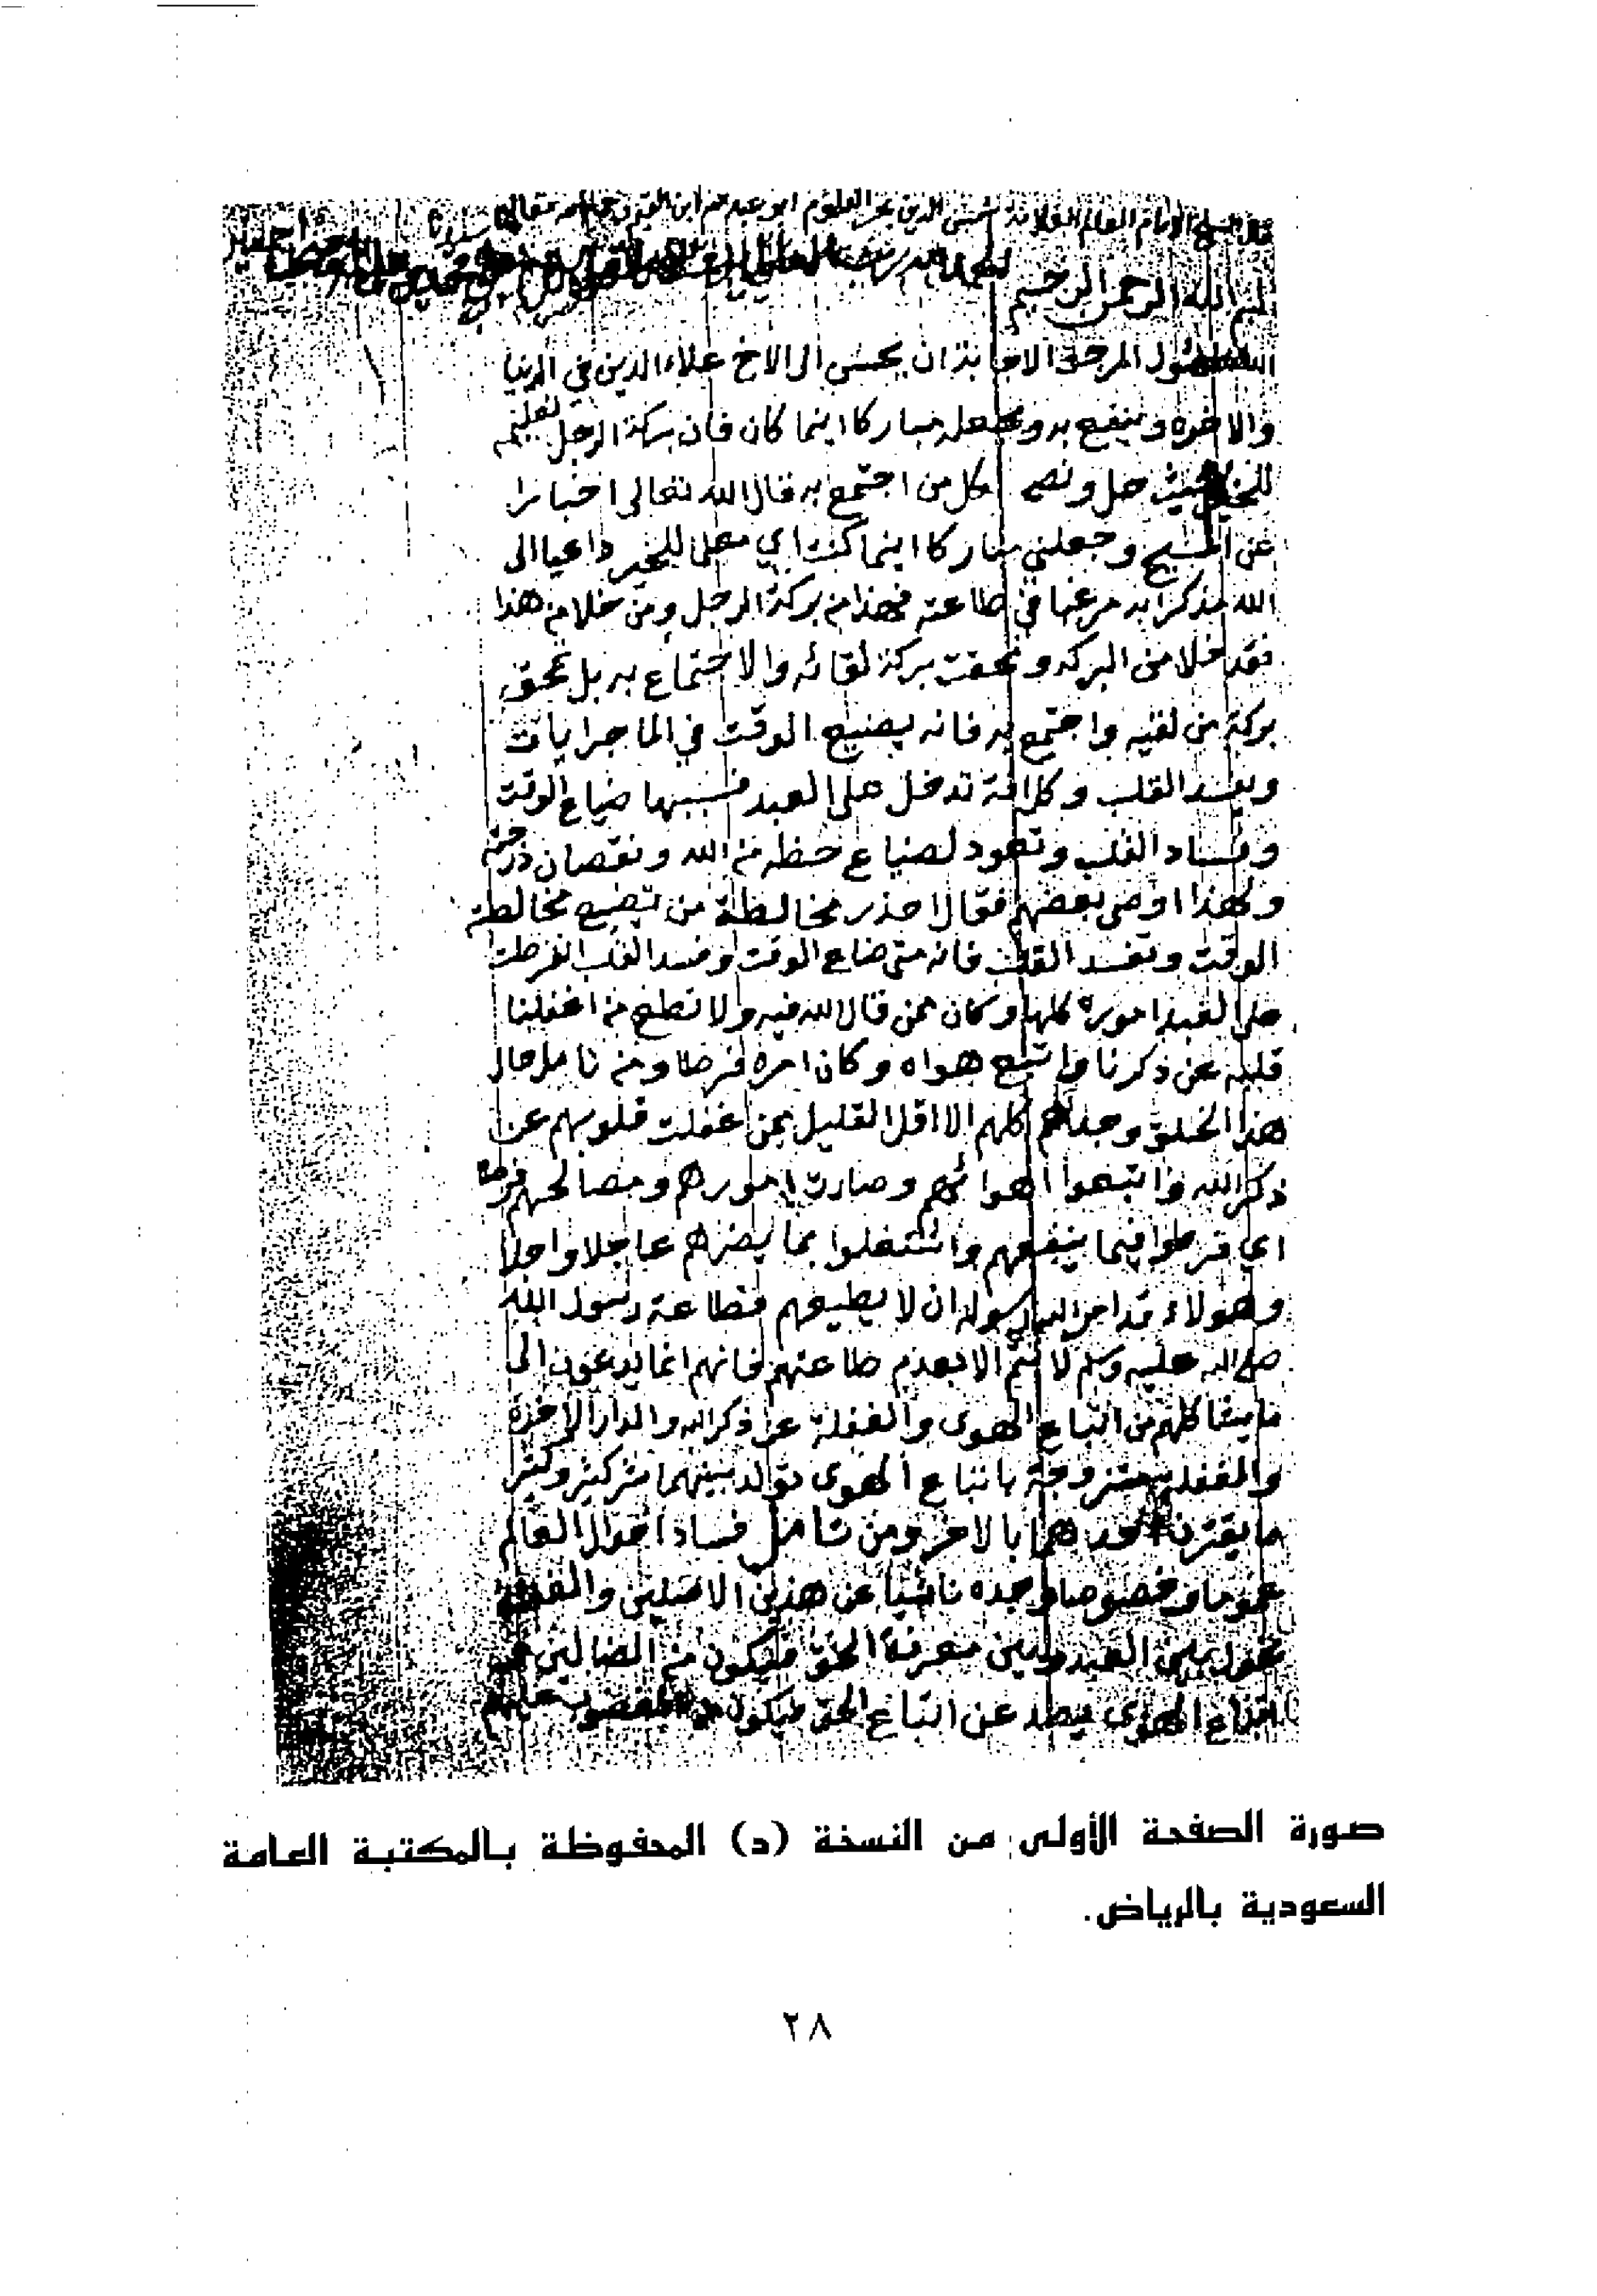 قال الشيخ الامام العالم العلامة شمس الدين بحر العلوم ابو عبد الله ابن القيم
بسم الله الرحمن الرحيم
الله المسؤل المرجو الاجابة ان يحسن الى الاخ علاء الدين في الدنيا
والاخره وينفع به ويجعله مباركا اينما كان فان بركة الرجل تعليمه
للخير حيث حل ونصحه لكل من اجتمع به قال الله تعالى اخبارا
عن المسيح وجعلني مباركا اينما كنت اي معلما للخير داعيا الى
الله مذكرا به مرغبا في طاعته فهذا من بركة الرجل ومن خلا من هذا
فقد خلا من البركه ومحقت بركة لقائه والاجتماع به بل تمحق
بركة من لقيه واجتمع به فانه يضيع الوقت في الماجرايات
ويفسد القلب وكل افة تدخل على العبد فسببها ضياع الوقت
وفساد القلب وتعود لضياع حظه من الله ونقصان درجته
ولهذا اوصى بعضهم فقال احذر مخالطة من تضيع مخالطته
الوقت وتفسد القلب فانه متى ضاع الوقت وفسد القلب انفرطت
على العبد اموره كلها وكان ممن قال الله فيه ولا تطع من اغفلنا
قلبه عن ذكرنا واتبع هواه وكان امره فرطا ومن تامل حال
هذا الخلق وجدهم كلهم الا اقل القليل ممن غفلت قلوبهم عن
ذكر الله واتبعوا اهوائهم وصارت امورهم ومصالحهم فرطا
اي فرطوا فيما ينفعهم واشتغلوا بما يضرهم عاجلا واجلا
وهولاء قد امر الله رسوله ان لا يطيعهم فطاعة رسول الله
صلى الله عليه وسلم لا تتم الا بعدم طاعتهم فانهم انما يدعون الى
ما يشاكلهم من اتباع الهوى والغفلة عن ذكر الله والدار الاخرة
والغفلة متزوجة باتباع الهوى تولد بينهما شر كثير وكثيرا
ما يقترن احدهما بالاخر ومن تامل فساد احوال العالم
عموما وخصوصا وجده ناشيا عن هذين الاصلين والغفلة
تحول بين العبد وبين معرفة الحق فيكون من الضالين
واتباع الهوى يصد عن اتباع الحق فيكون من المغضوب عليهم
صورة الصفحة الأولى من النسخة (د) المحفوظة بالمكتبة العامة
السعودية بالرياض.
٢٨